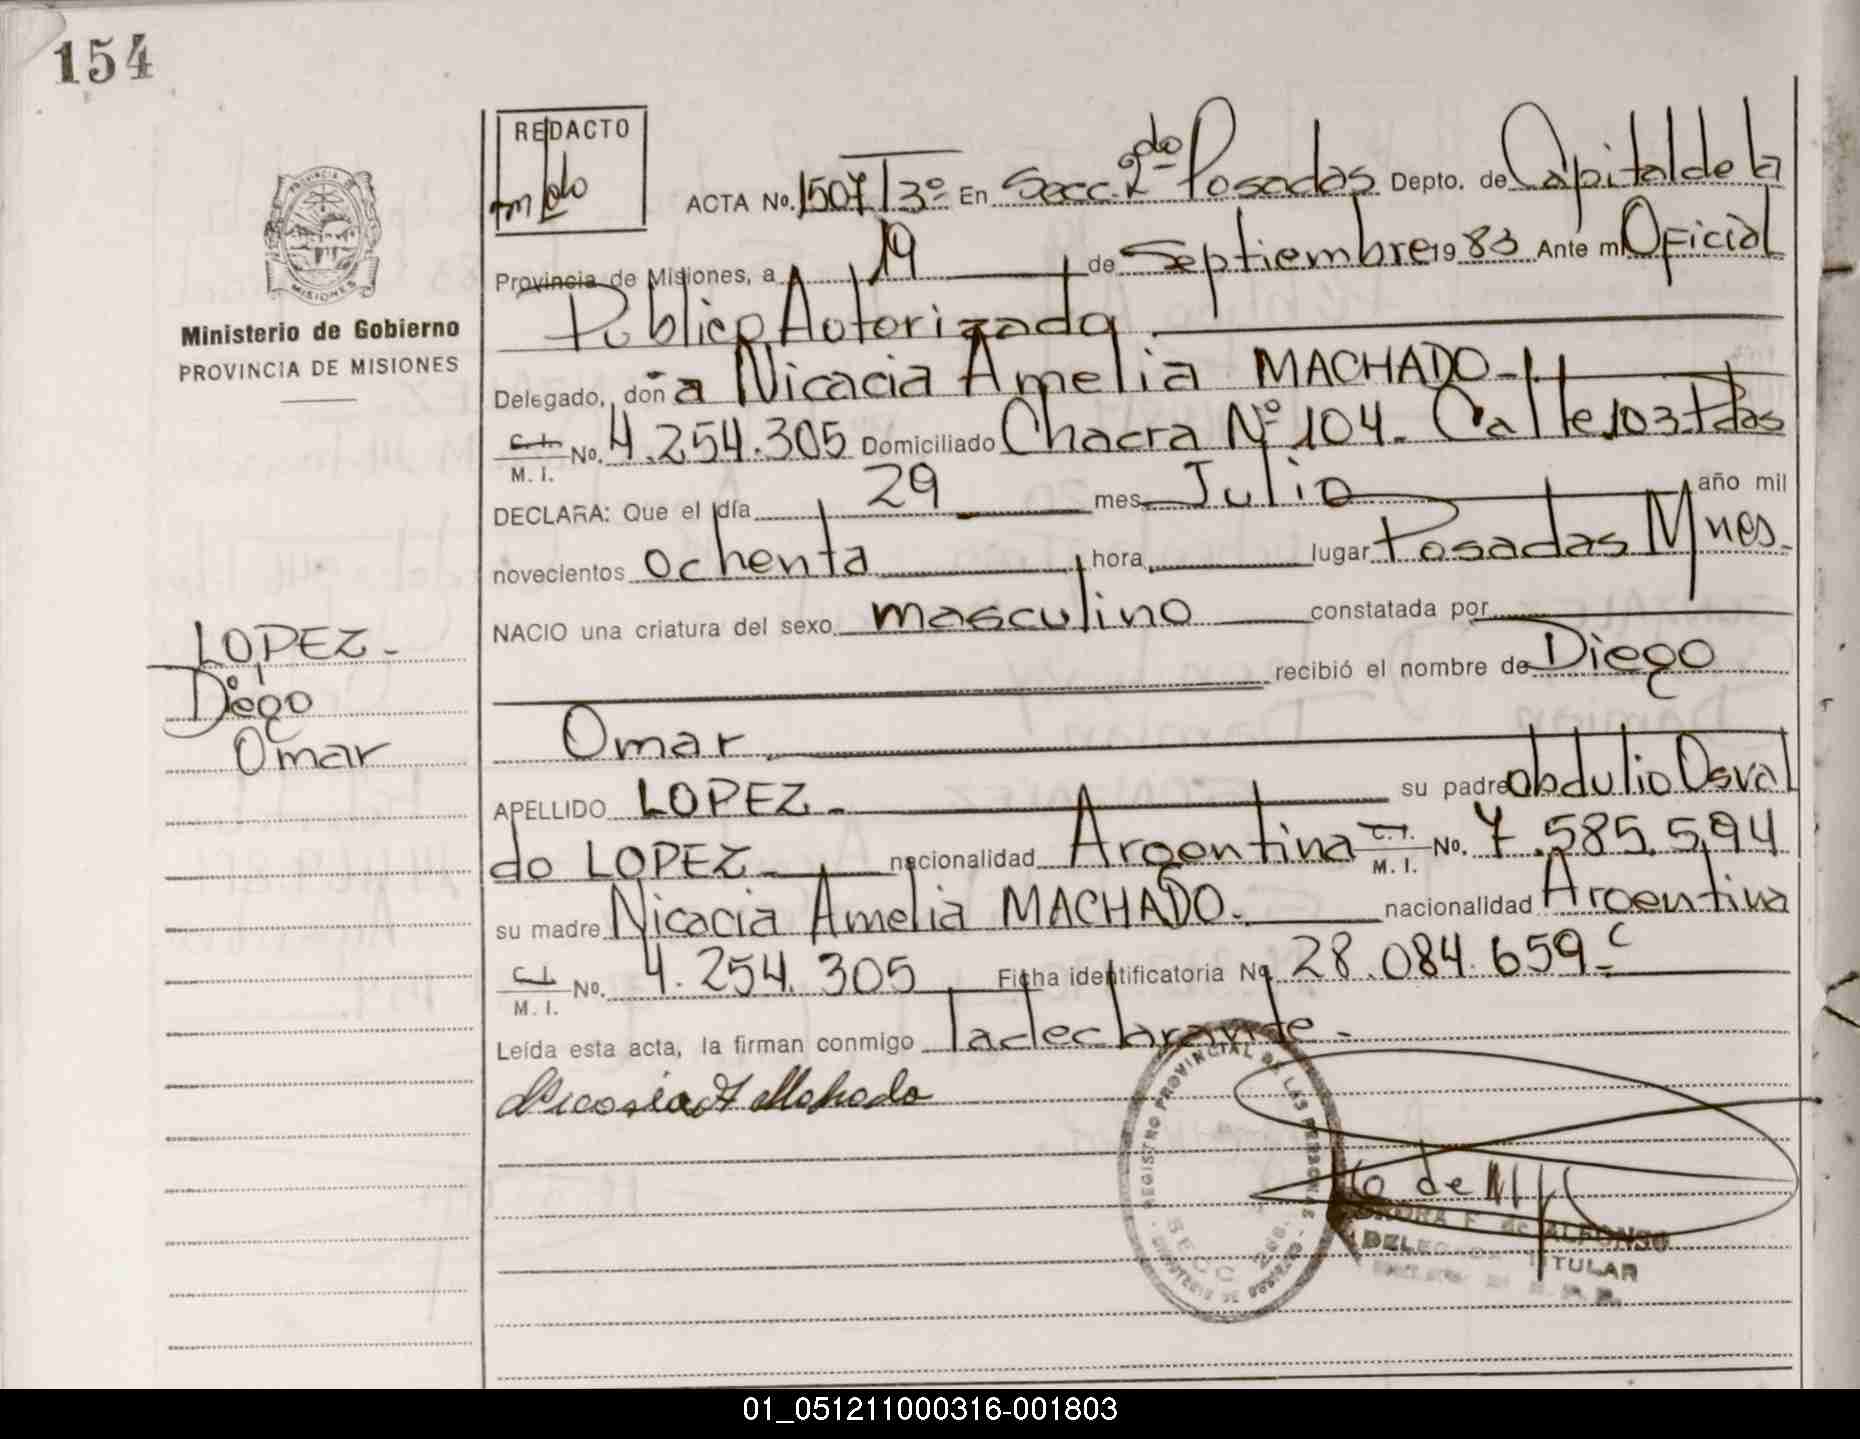 154
REDACTO
ACTA No. 1507 T 3º En Secc. 2do Posadas Depto. de Capital de la
Provincia de Misiones, a 19 de Septiembre 1983 Ante mi Oficial
Publico Autorizado
Ministerio de Gobierno
PROVINCIA DE MISIONES
Delegado, doña Nicacia Amelia MACHADO-
C. I.
M. I. No. 4.254.305 Domiciliado Chacra Nº 104. Calle 103-Pdas
DECLARA: Que el día 29 mes Julio año mil
novecientos ochenta hora lugar Posadas Mnes.
NACIO una criatura del sexo masculino constatada por
recibió el nombre de Diego
Omar
LOPEZ-
Diego
Omar
APELLIDO LOPEZ- su padre Obdulio Osval
do LOPEZ- nacionalidad Argentina C. I. M. I. No. 7.585.594
su madre Nicacia Amelia MACHADO. nacionalidad Argentina
C. I.
M. I. No. 4.254.305 Ficha identificatoria No 28.084.659-C
Leída esta acta, la firman conmigo la declarante-
Nicasia A Machado
REGISTRO PROVINCIAL DE LAS PERSONAS
SECC 2da.
F. de ALFONSO
DELEGADA TITULAR
01_051211000316-001803